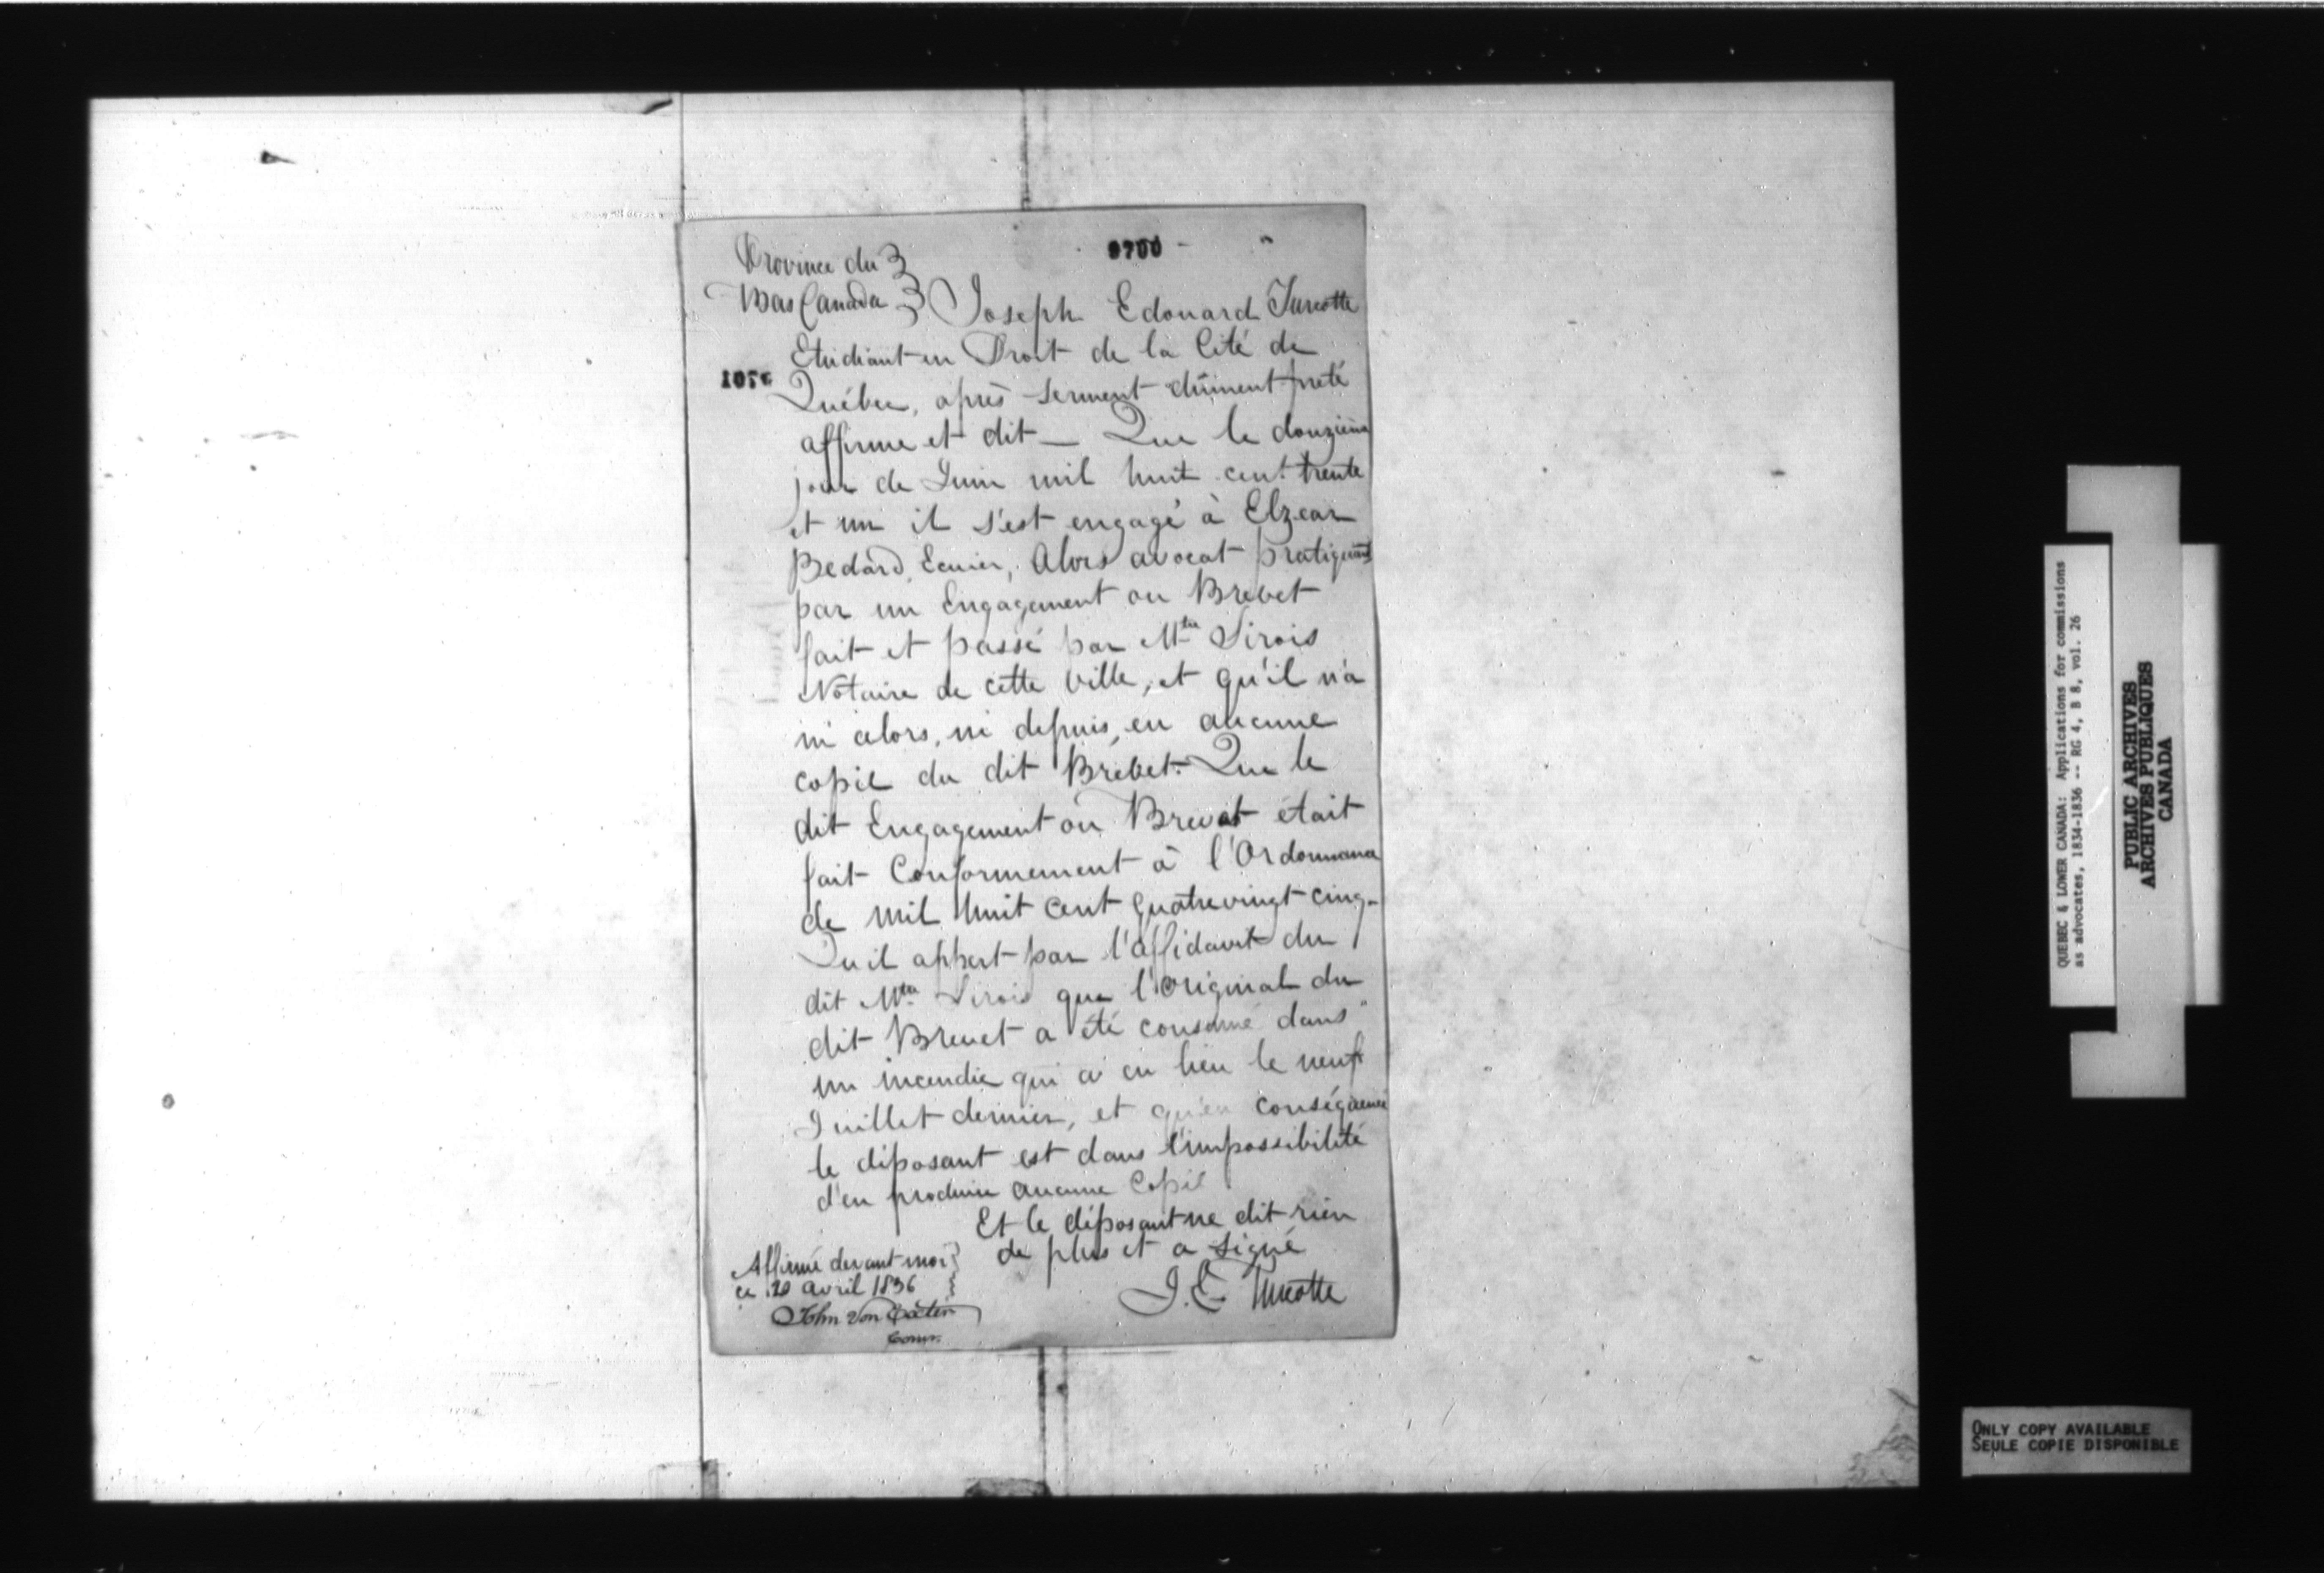 9700
Province du
Bas Canada
Joseph Edouard Turcotte
Etudiant en Droit de la Cité de
107
Québec, après serment dûment preté
affirme et dit — Que le douzième
jour de Juin mil huit cent trente
et un il s'est engagé à Elzear
Bedard, Ecuier, Alors avocat pratiquant
par un Engagement ou Brevet
fait et passé par Mtre Sirois
Notaire de cette Ville, et qu'il n'a
ni alors, ni depuis, eu aucune
copie du dit Brevet. Que le
dit Engagement ou Brevet était
fait Conformement à l'Ordonnance
de mil huit cent quatrevingt cinq -
Qu'il appert par l'affidavit du
dit Mtre Sirois que l'Original du
dit Brevet a été consumé dans
un incendie qui a eu lieu le neuf
Juillet dernier, et qu'en conséquence
le déposant est dans l'impossibilité
d'en produire aucune Copie
Et le déposant ne dit rien
de plus et a signé
J. E. Turcotte
Affirmé devant moi
ce 20 avril 1836
John Von Exeter
Comr.
QUEBEC & LOWER CANADA: Applications for commissions
as advocates, 1834-1836 -- RG 4, B 8, vol. 26
PUBLIC ARCHIVES
ARCHIVES PUBLIQUES
CANADA
ONLY COPY AVAILABLE
SEULE COPIE DISPONIBLE